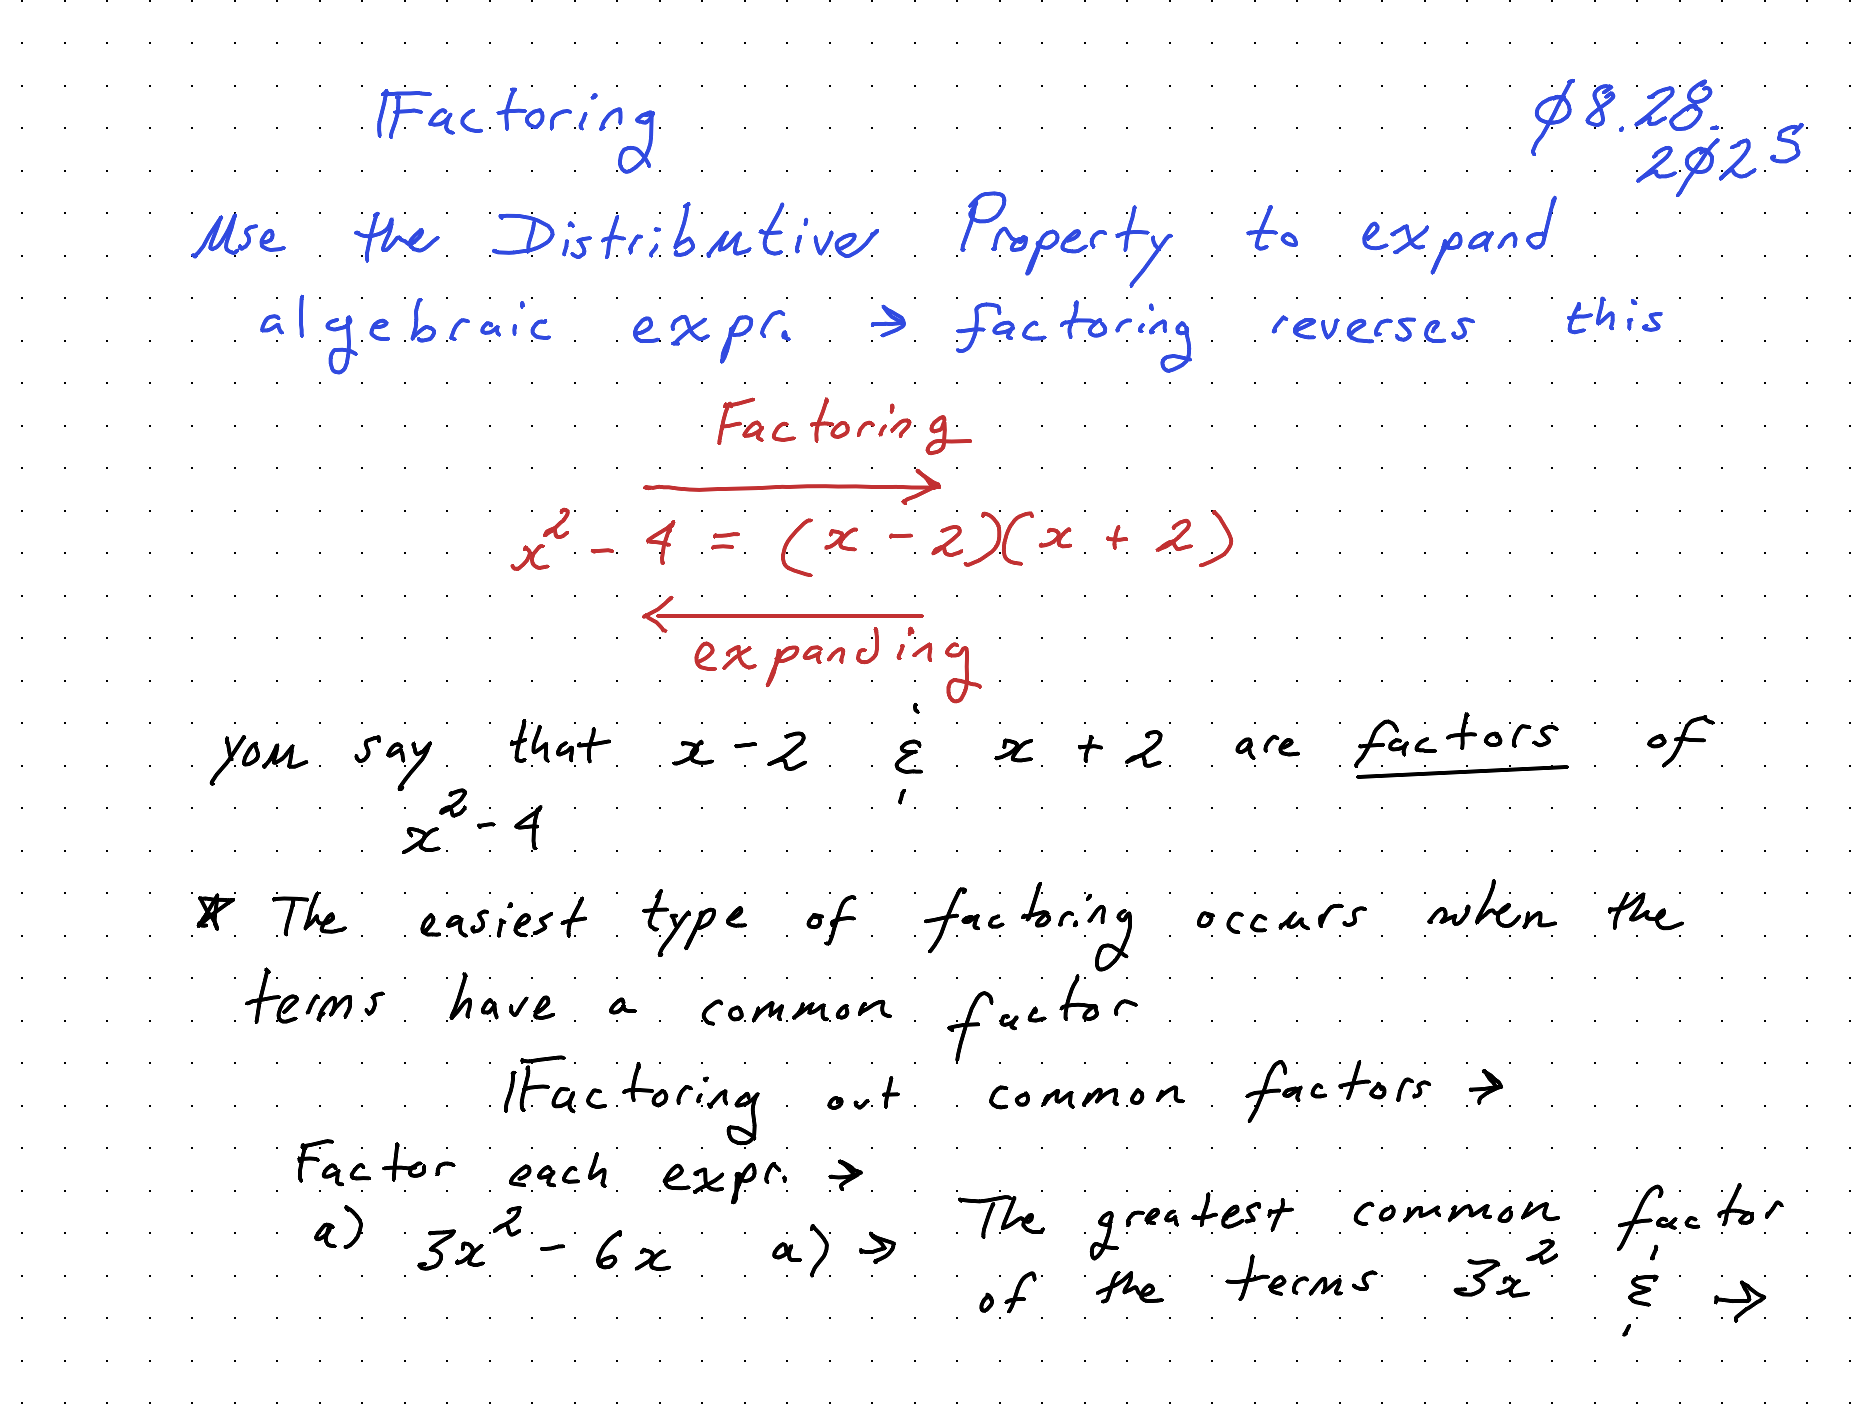 Factoring
ø8.28.
2ø25
Use the Distributive Property to expand
algebraic expr. → factoring reverses this
Factoring
x² - 4 = (x - 2)(x + 2)
expanding
you say that x - 2 & x + 2 are factors of
x² - 4
* The easiest type of factoring occurs when the
terms have a common factor
Factoring out common factors →
Factor each expr. →
a) 3x² - 6x a) → The greatest common factor
of the terms 3x² & →